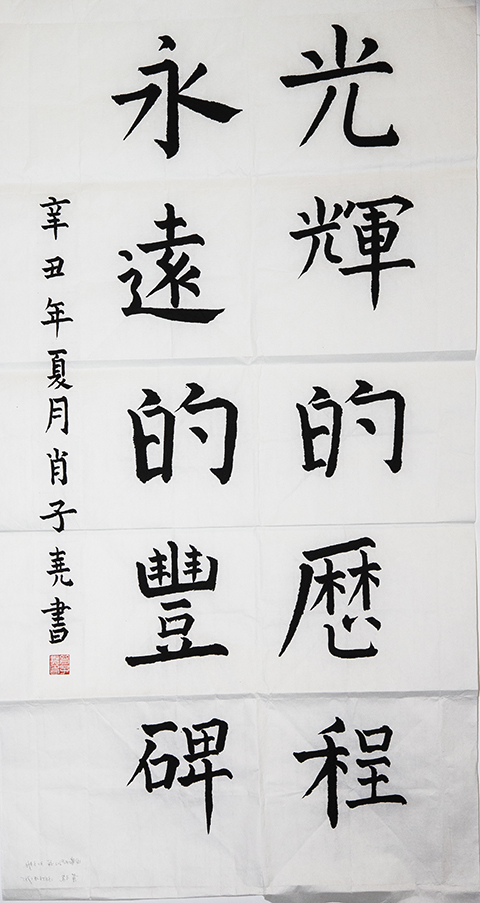 光輝的歷程
永遠的豐碑
辛丑年夏月肖子堯書